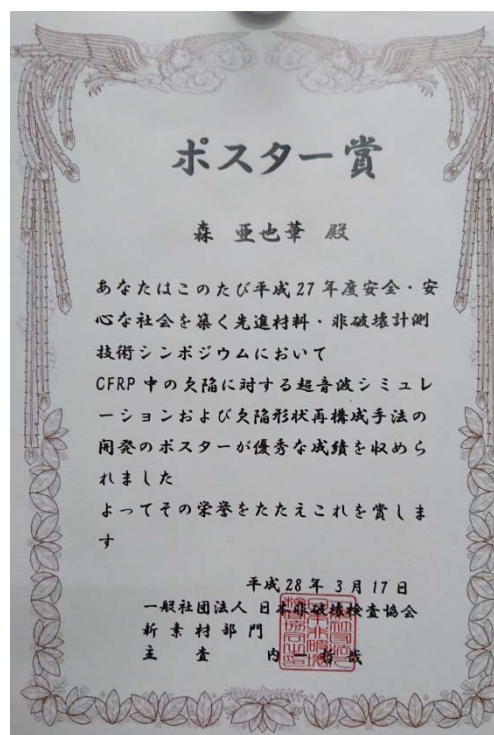 ポスター賞
森 亜也華 殿
あなたはこのたび平成27年度安全・安
心な社会を築く先進材料・非破壊計測
技術シンポジウムにおいて
CFRP中の欠陥に対する超音波シミュレ
ーションおよび欠陥形状再構成手法の
開発のポスターが優秀な成績を収めら
れました
よってその栄誉をたたえこれを賞しま
す
平成28年3月17日
一般社団法人 日本非破壊検査協会
新素材部門
主 査 内一哲哉